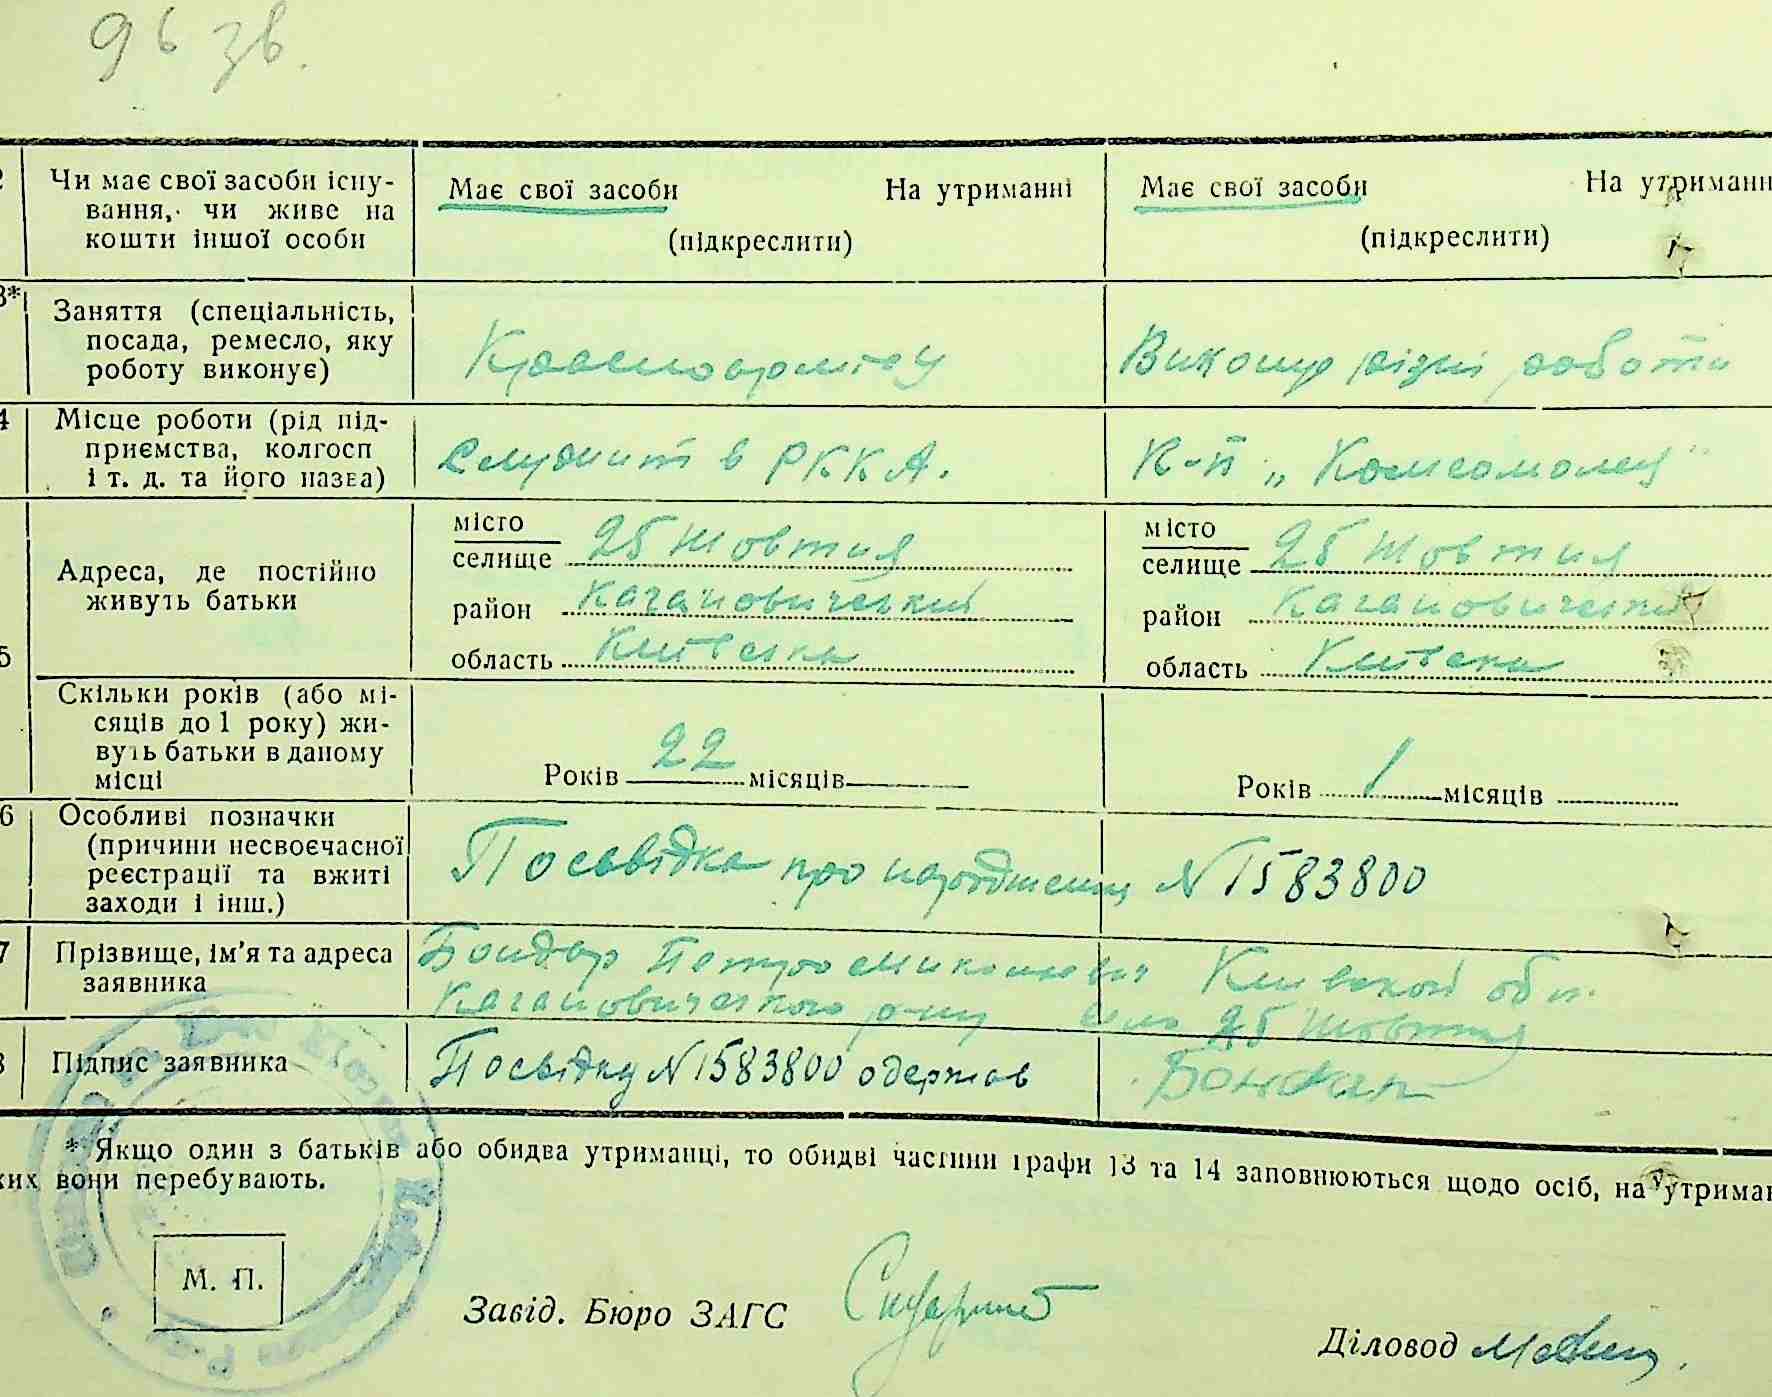 96 зв.
2 Чи має свої засоби існу-
вання, чи живе на
кошти іншої особи
Має свої засоби На утриманні
(підкреслити)
Має свої засоби На утриманн
(підкреслити)
3* Заняття (спеціальність,
посада, ремесло, яку
роботу виконує)
Красноармієц
Виконує різні роботи
4 Місце роботи (рід під-
приємства, колгосп
і т. д. та його назва)
Служит в РККА.
К-п „Комсомолец"
5 Адреса, де постійно
живуть батьки
місто
селище 25 Жовтня
район Кагановический
область Київска
місто
селище 25 Жовтня
район Кагановический
область Київска
Скільки років (або мі-
сяців до 1 року) жи-
вуть батьки в даному
місці
Років 22 місяців
Років 1 місяців
6 Особливі позначки
(причини несвоєчасної
реєстрації та вжиті
заходи і інш.)
Посьвідка про народження N 1583800
7 Прізвище, ім'я та адреса
заявника
Бондар Петро Миколаевич Киевской обл.
Кагановического р-ну село 25 Жовтня
8 Підпис заявника
Посвідку N 1583800 одержав
Бондар
* Якщо один з батьків або обидва утриманці, то обидві частини графи 13 та 14 заповнюються щодо осіб, на утриман
ких вони перебувають.
М. П.
Завід. Бюро ЗАГС
Діловод